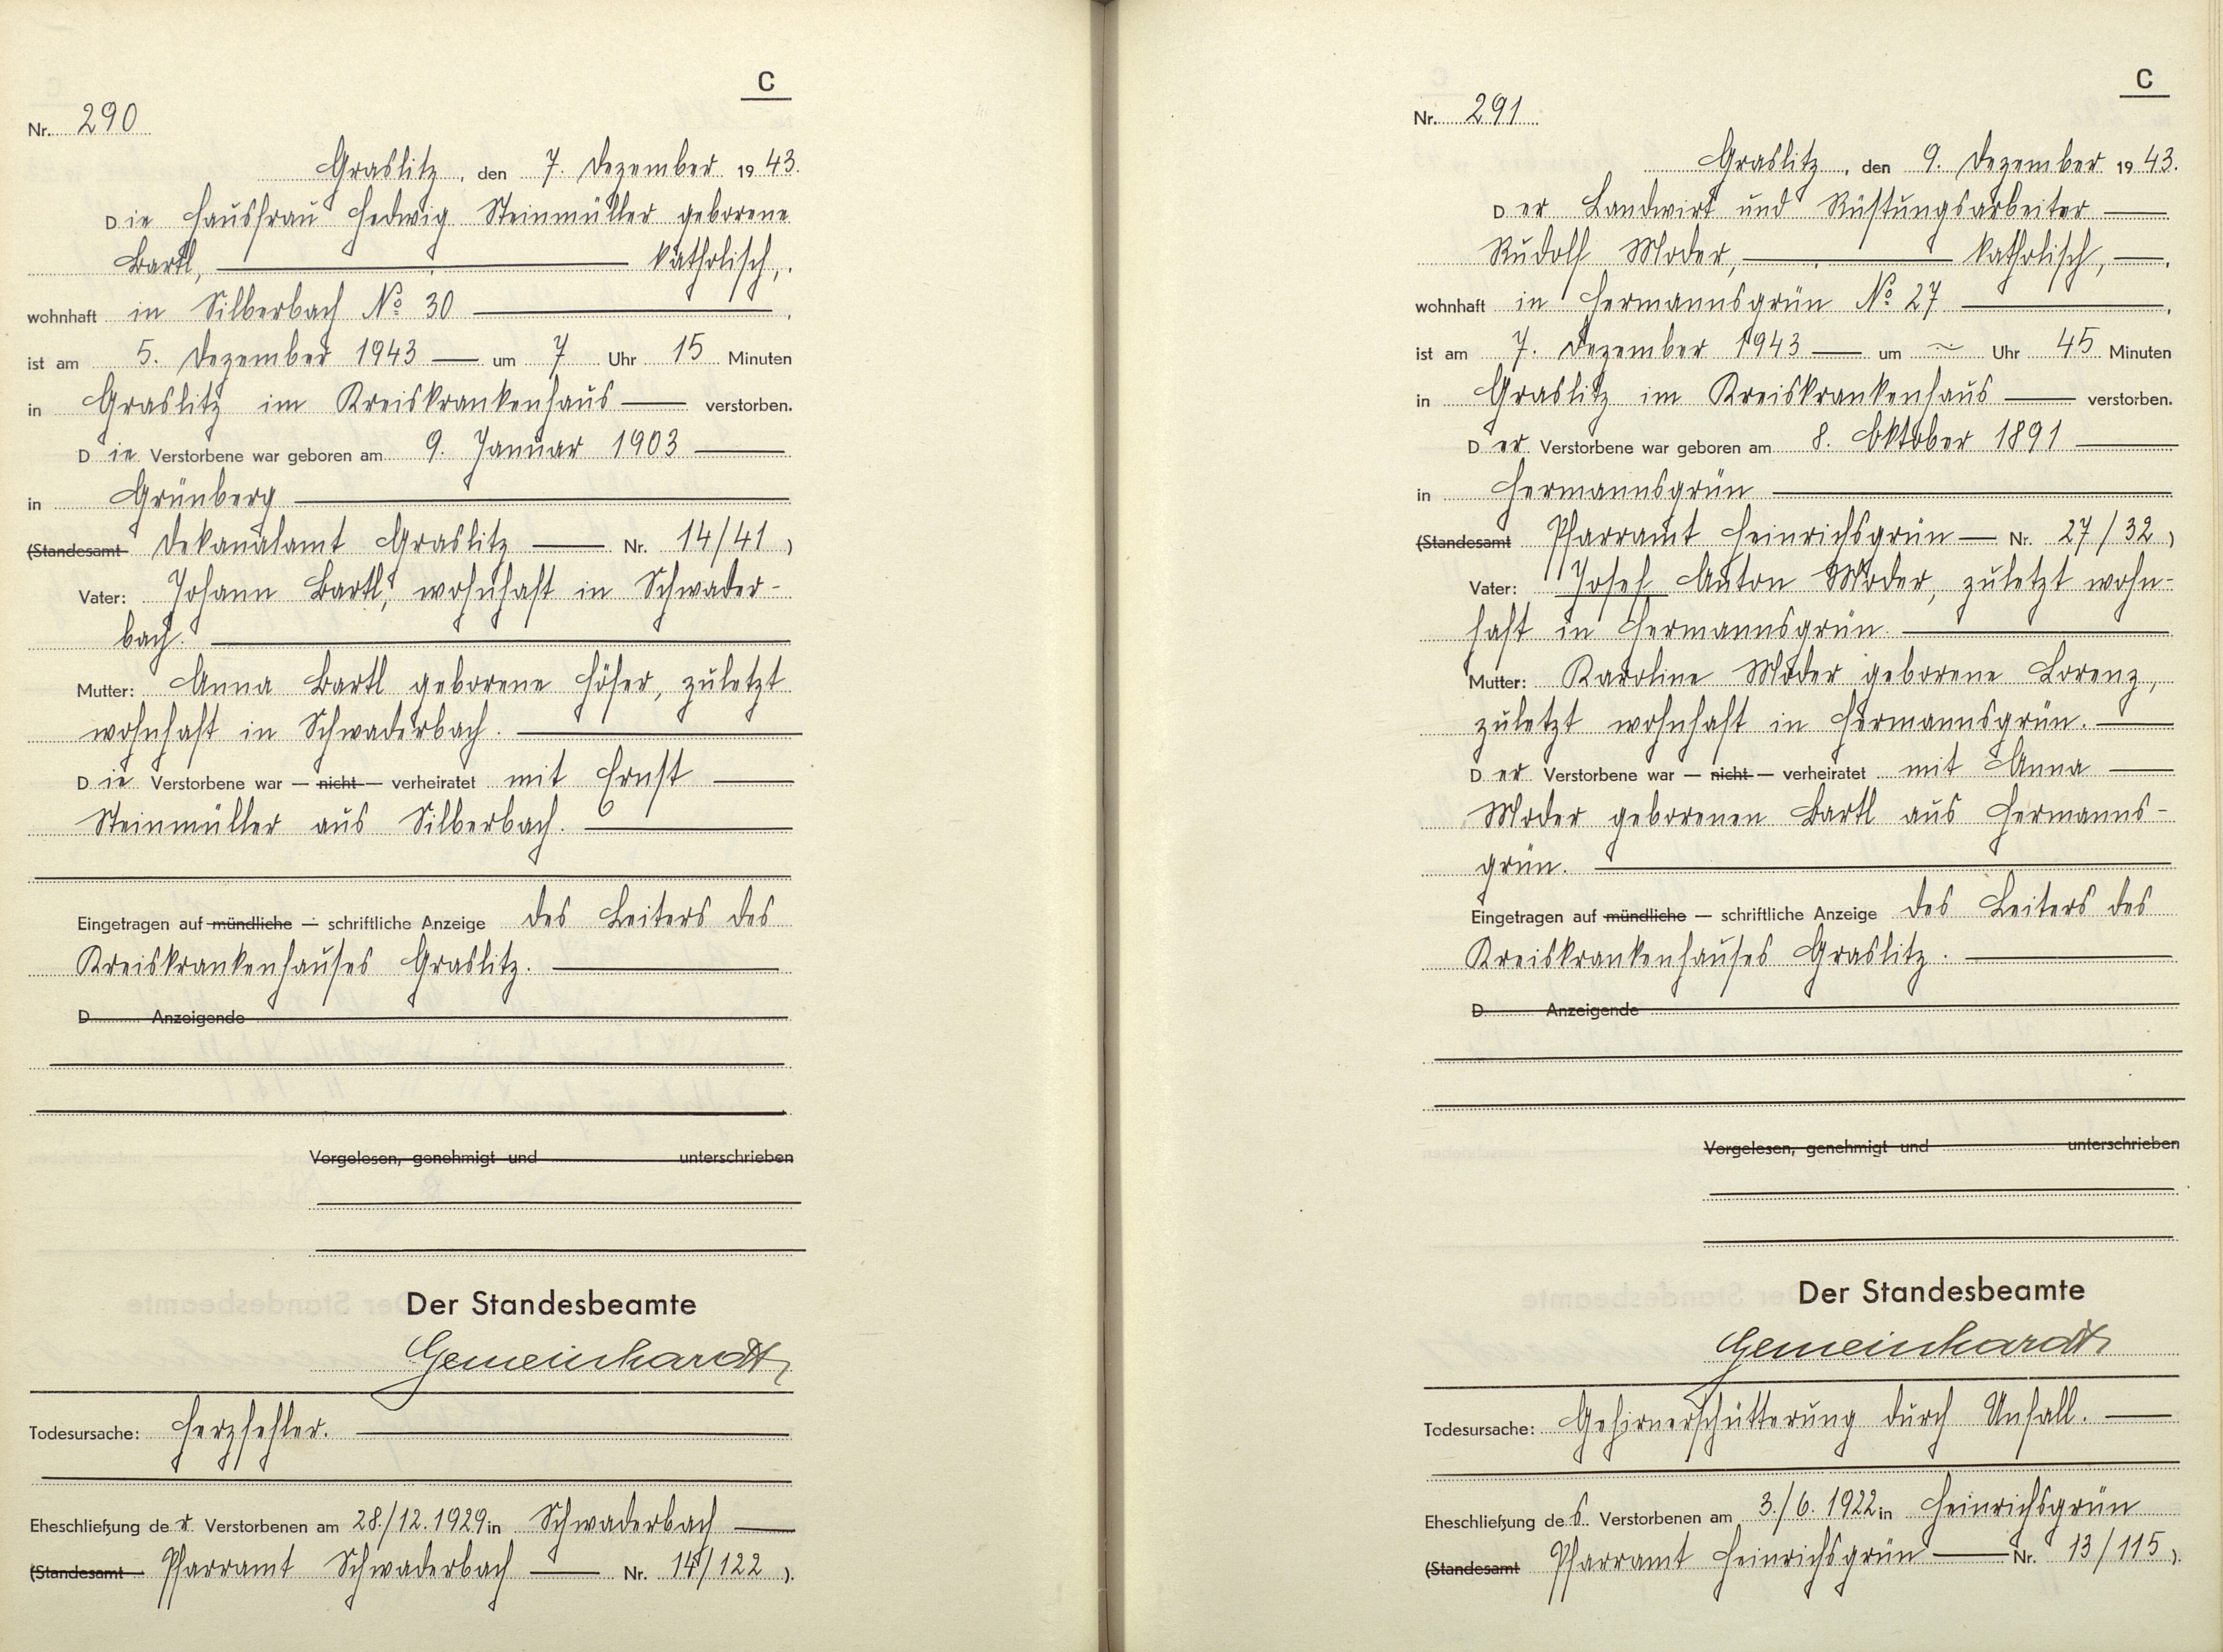 C
Nr. 290
Graslitz, den 7. Dezember 1943.
Die Hausfrau Hedwig Steinmüller geborene
Bartl, katholisch,
wohnhaft in Silberbach No 30
ist am 5. Dezember 1943 um 7 Uhr 15 Minuten
in Graslitz im Kreiskrankenhaus verstorben.
Die Verstorbene war geboren am 9. Januar 1903
in Grünberg
(Standesamt Dekanalamt Graslitz Nr. 14/41)
Vater: Johann Bartl, wohnhaft in Schwader-
bach.
Mutter: Anna Bartl geborene Höser, zuletzt
wohnhaft in Schwaderbach.
Die Verstorbene war — nicht — verheiratet mit Ernst
Steinmüller aus Silberbach.
Eingetragen auf mündliche — schriftliche Anzeige des Leiters des
Kreiskrankenhauses Graslitz.
D Anzeigende
Vorgelesen, genehmigt und unterschrieben
Der Standesbeamte
Gemeinhardt
Todesursache: Herzfehler.
Eheschließung der Verstorbenen am 28./12.1929 in Schwaderbach
(Standesamt Pfarramt Schwaderbach Nr. 14/122).
C
Nr. 291
Graslitz, den 9. Dezember 1943.
Der Landwirt und Rüstungsarbeiter
Rudolf Moder, katholisch,
wohnhaft in Hermannsgrün No 27
ist am 7. Dezember 1943 um ~ Uhr 45 Minuten
in Graslitz im Kreiskrankenhaus verstorben.
Der Verstorbene war geboren am 8. Oktober 1891
in Hermannsgrün
(Standesamt Pfarramt Heinrichsgrün Nr. 27/32)
Vater: Josef Anton Moder, zuletzt wohn-
haft in Hermannsgrün.
Mutter: Karoline Moder geborene Lorenz,
zuletzt wohnhaft in Hermannsgrün.
Der Verstorbene war — nicht — verheiratet mit Anna
Moder geborenen Bartl aus Hermanns-
grün.
Eingetragen auf mündliche — schriftliche Anzeige des Leiters des
Kreiskrankenhauses Graslitz.
D Anzeigende
Vorgelesen, genehmigt und unterschrieben
Der Standesbeamte
Gemeinhardt
Todesursache: Gehirnerschütterung durch Unfall.
Eheschließung des Verstorbenen am 3./6. 1922 in Heinrichsgrün
(Standesamt Pfarramt Heinrichsgrün Nr. 13/115).